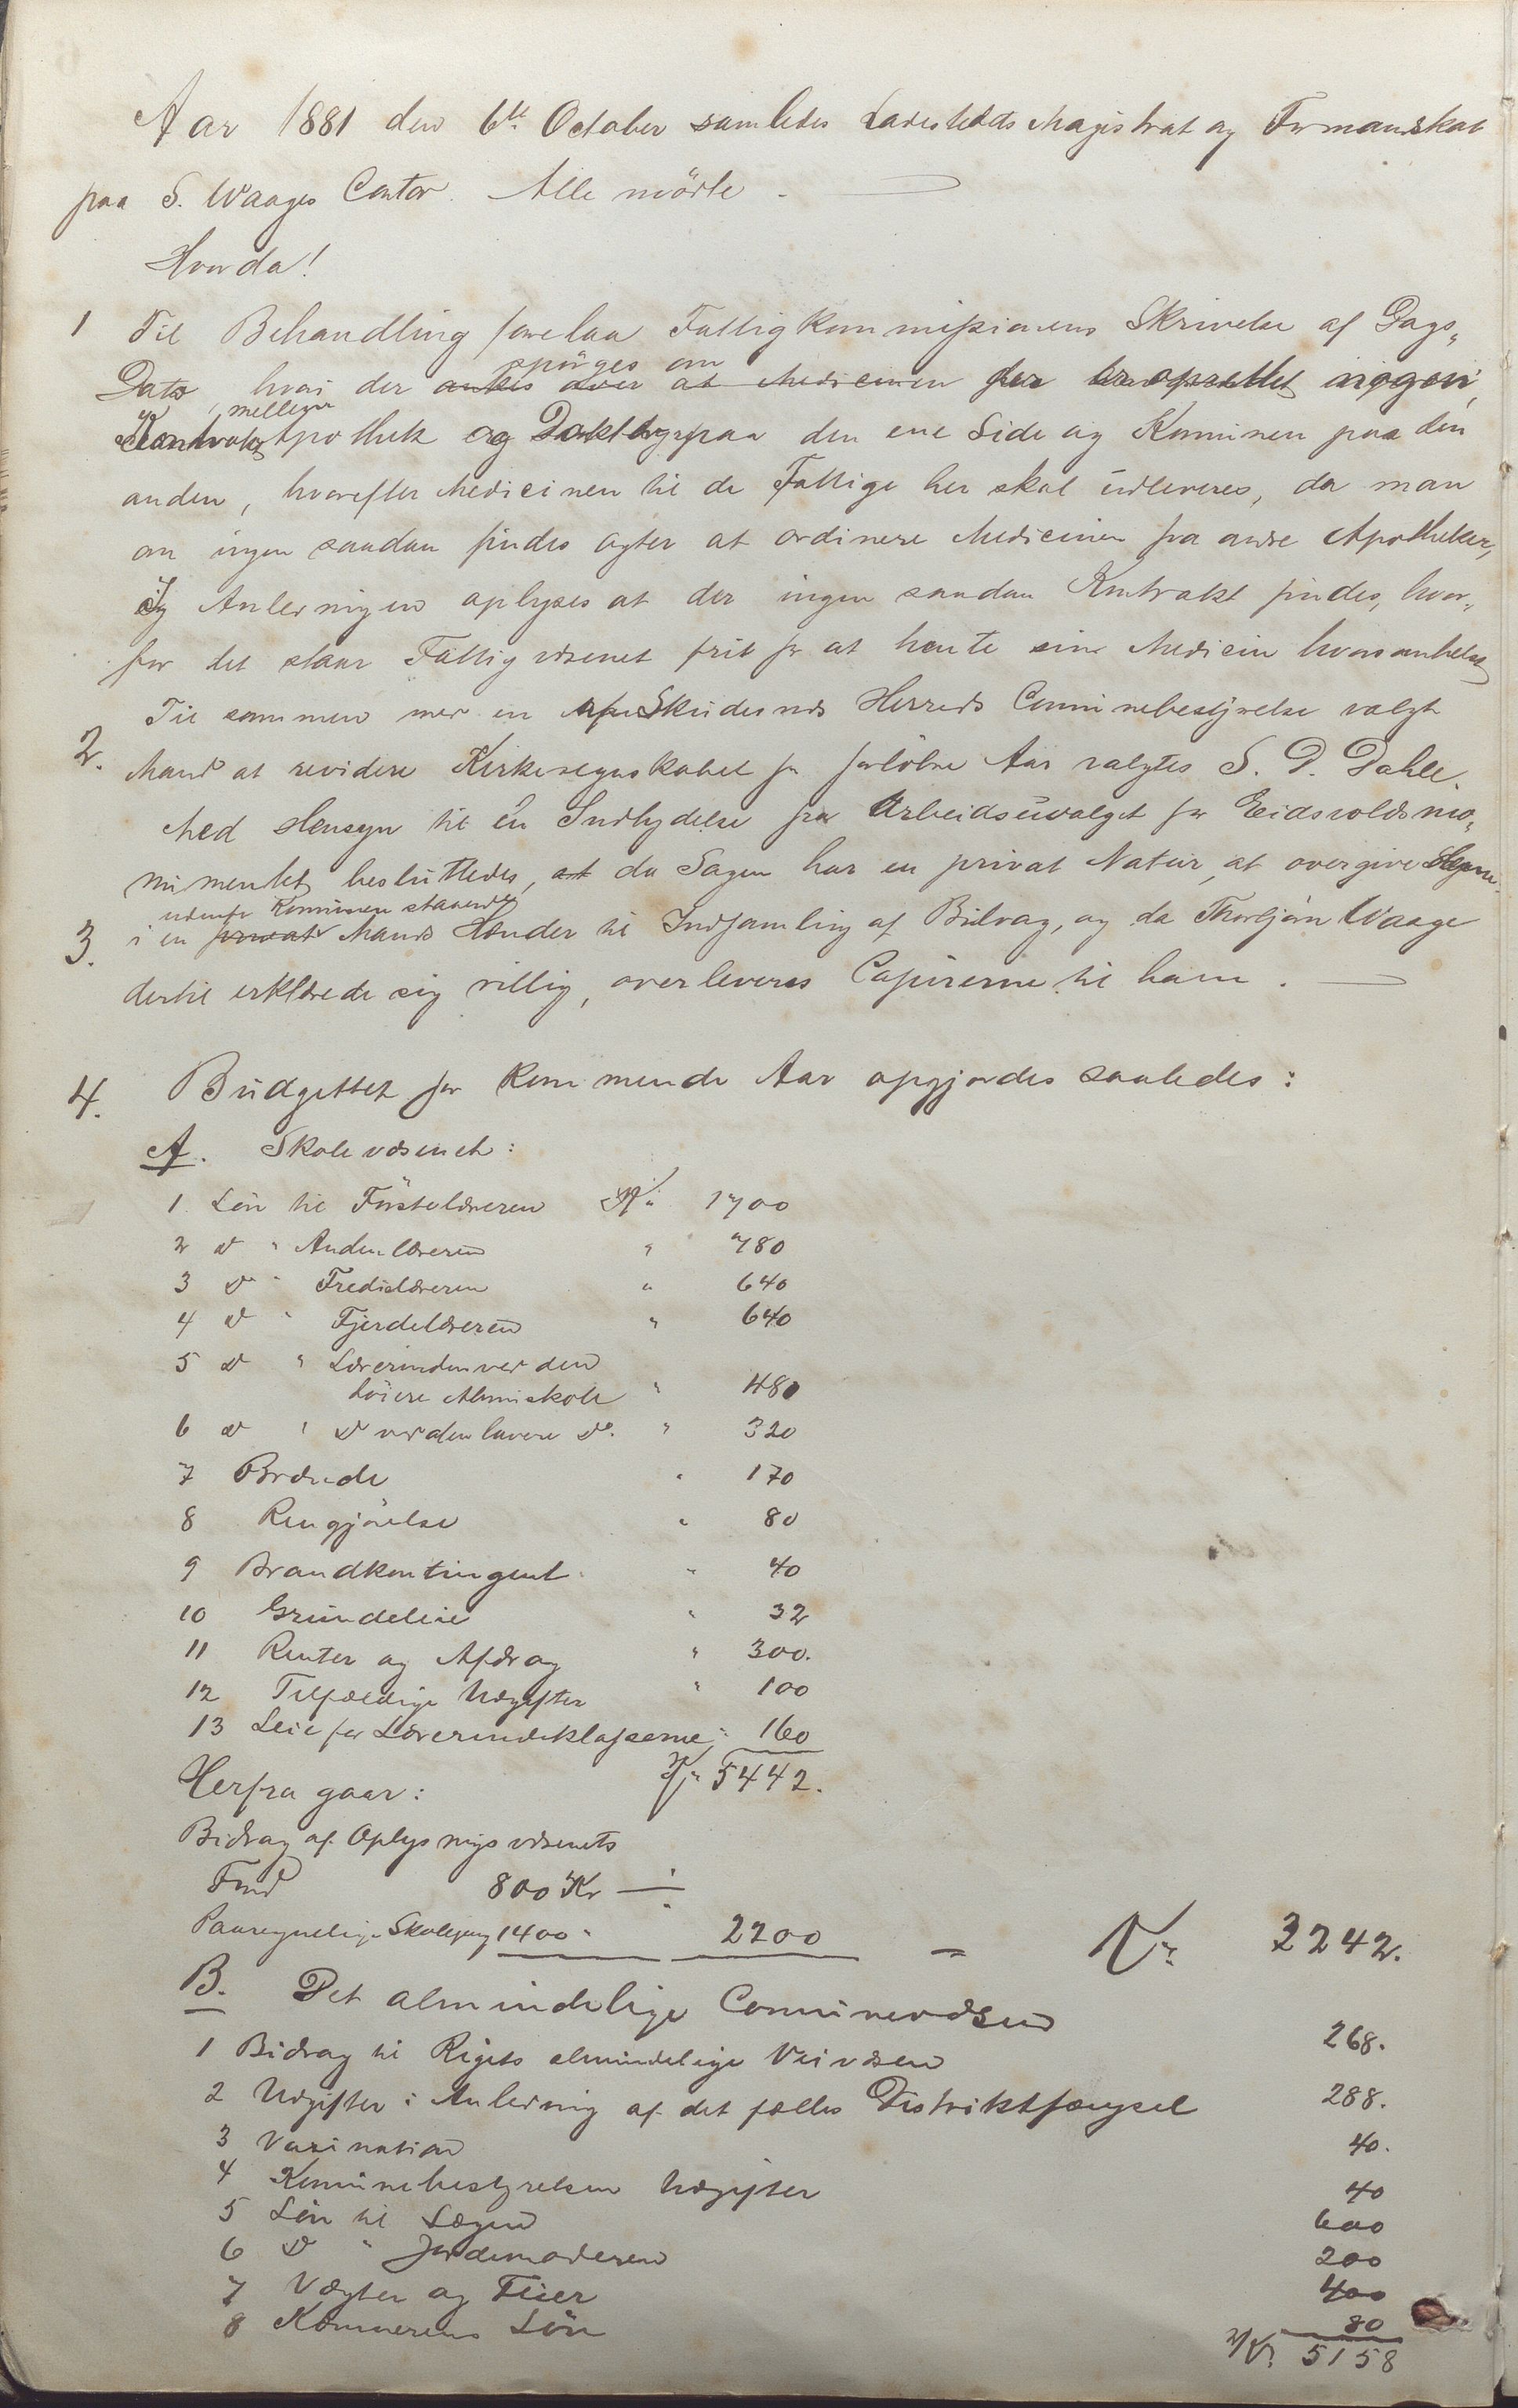 Aar 1881 den 6te October samledes Ladestedds Magistrat og Formandskab
paa S. Waages Contor. Alle mödte. —
Hvorda!
1 Til Behandling forelaa Fattigkommissionens Skrivelse af Dags„
Dato hvori der spörges om der er oprettet nogen
Kontrakt mellem Apothek og Doktor paa den ene Side og Kommunen paa den
anden, hvorefter Medicinen til de Fattige her skal udleveres, da man
om ingen saadan findes agter at ordinere Medicinen fra andre Apotheker,
I Anledningen oplyses at der ingen saadan Kontrakt findes, hvor„
for det staar Fattigvæsenet frit for at hente sin Medicin hvorsomhelst
2. Til sammen med en af Skudesnæs Herreds Communebestyrelse valgt
Mand at revidere Kirkeregnskabet for forlöbne Aar valgtes S. D. Dahle.
Med Hensyn til en Indbydelse fra Arbeidsudvalget for Eidsvoldsmo„
numentet besluttedes, at da Sagen har en privat Natur, at overgive Sagen
3. i en udenfor Kommunen staaende privat Mands Hænder til Indsamling af Bidrag, og da Thorbjörn Waage
dertil erklærede sig villig, overleveres Papirerne til ham. —
4. Budgettet for kommende Aar opgjordes saaledes:
A. Skolevæsenet:
1 Lön til Förstelæreren Kr 1700
2 do " Andenlæreren " 780
3 do " Tredielæreren " 640
4 do " Fjerdelæreren " 640
5 do " Lærerinden ved den
höiere Almuskole " 480
6 do " do ved den lavere do. " 320
7 Brænde " 170
8 Rengjörelse " 80
9 Brandkontingent " 40
10 Grundeleie " 32
11 Renter og Afdrag " 300.
12 Tilfældige Udgifter " 100
13 Leie for Lærerindeklasserne " 160
Herfra gaar: Kr 5442.
Bidrag af Oplysnigsvæsenets
Fond 800 Kr ÷
Paaregnelige Skolepeng 1400 " 2200 = Kr 3242.
B. Det almindelige Communevæsen
1 Bidrag til Rigets almindelige Veivæsen 268.
2 Udgifter i Anledning af det fælles Distriktsfængsel 288.
3 Vaxination 40.
4 Kommunebestyrelsen Udgifter 40
5 Lön til Lægen 600
6 do " Jordemoderen 200
7 Vægter og Feier 400
8 Kæmnerens Lön 80
Kr. 5158